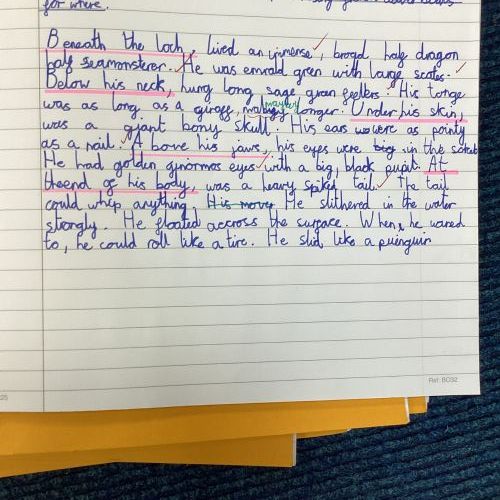 for where.
Beneath the loch, lived an imense, broad half dragon
half seamonsterer. He was emrald green with large scales.
Below his neck, hung long sage green feelers. His tonge
was as long as a giraff, maybey longer. Under his skin,
was a giant bony skull. His ears were as pointy
as a nail. Above his jaws, his eyes were big in the
He had golden ginormos eyes with a big, black pupil. At
the end of his body, was a heavy spiked tail. The tail
could whip anything. His move He slithered in the water
strongly. He floated accross the surface. When he waned
to, he could roll like a tire. He slid like a puinguin
Ref: BO32
25